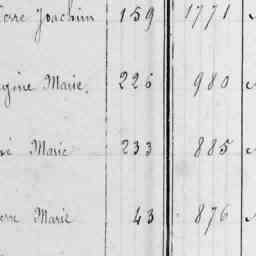 Joachim 159 1771
Marie. 226 980
Marie 233 885
Marie 43 876